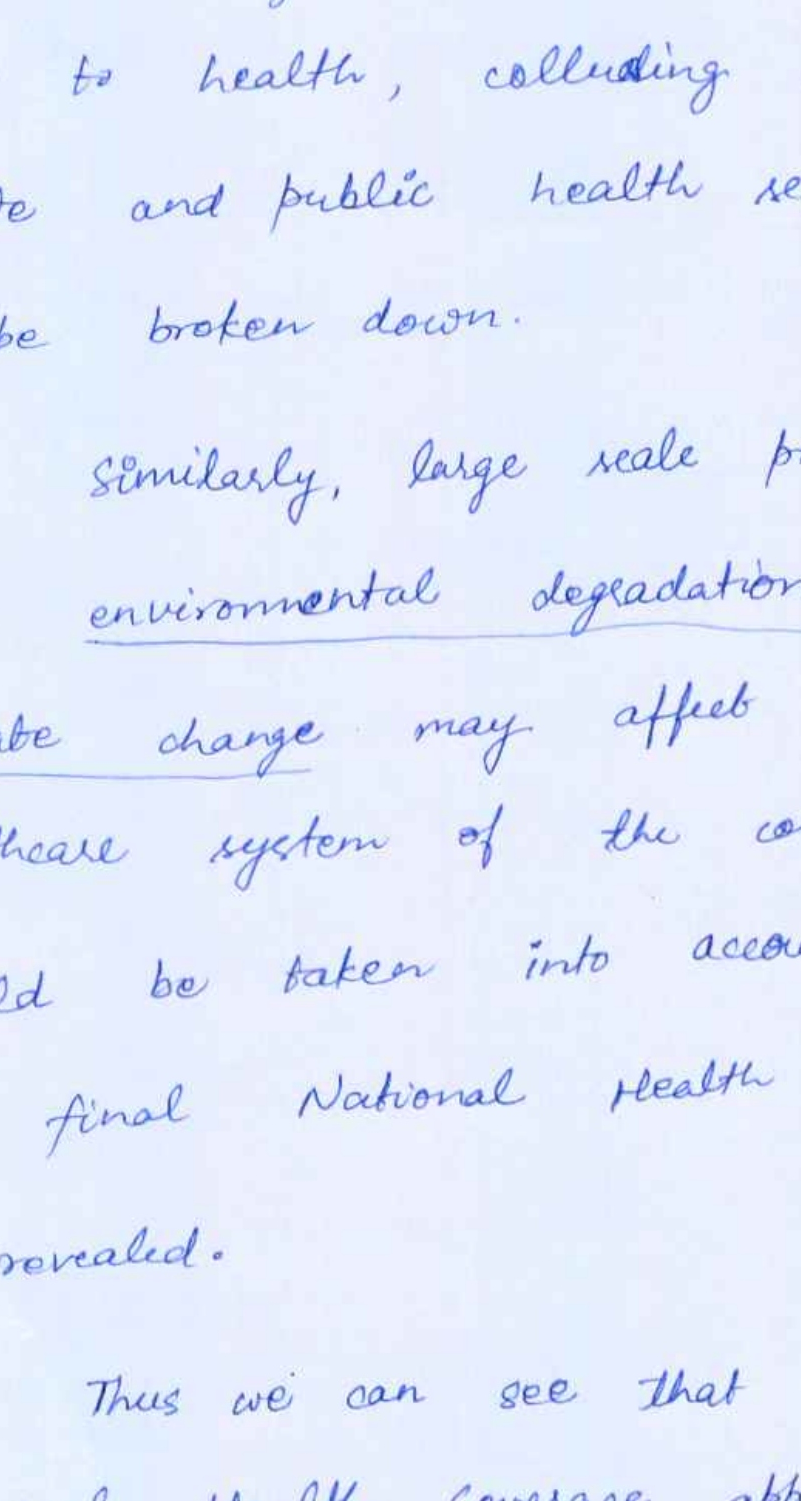 to health, colluding
and public health se
be broken down.
Similarly, large scale p
environmental degradation
change may affect
thcare system of the co
ld be taken into accou
final National Health
revealed.
Thus we can see that
coverage